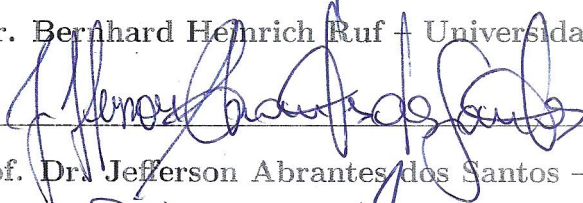 r. Bernhard Heinrich Ruf – Universida
Jefferson Abrantes dos Santos
of. Dr. Jefferson Abrantes dos Santos –